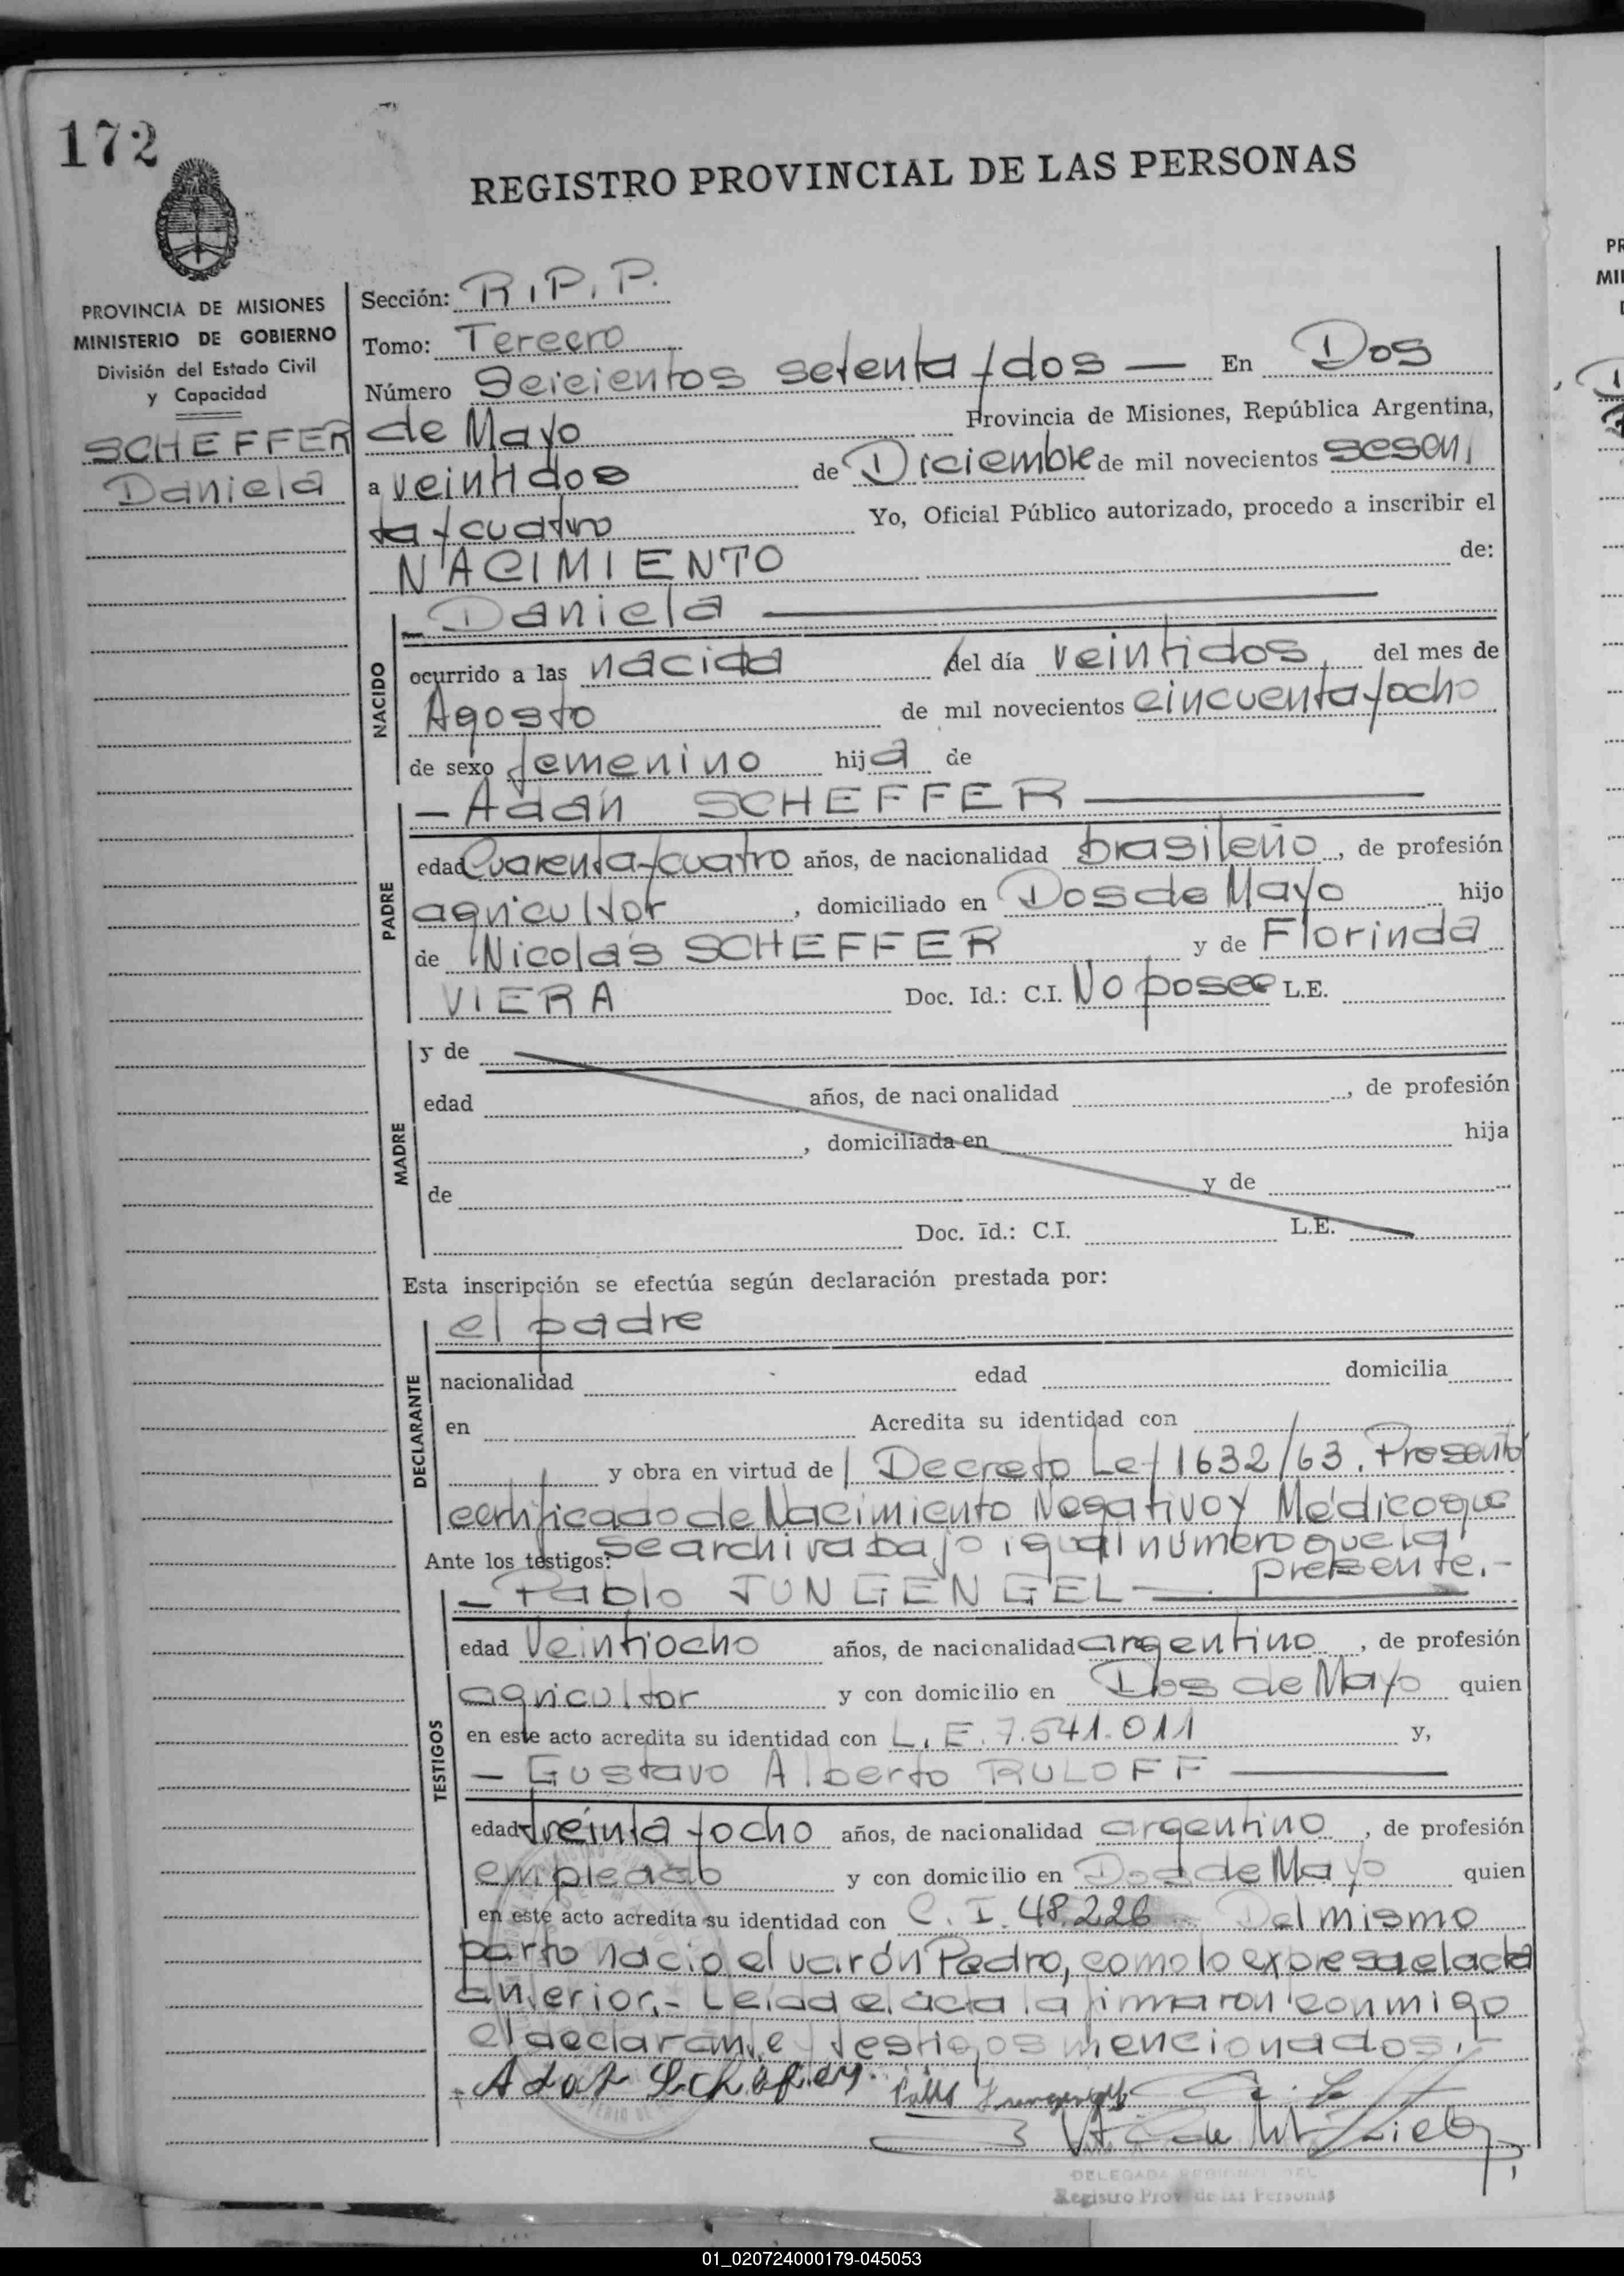 172
REGISTRO PROVINCIAL DE LAS PERSONAS
PROVINCIA DE MISIONES
MINISTERIO DE GOBIERNO
División del Estado Civil
y Capacidad
SCHEFFER
Daniela
Sección: R.P.P.
Tomo: Tercero
Número Seicientos setenta y dos — En Dos
de Mayo Provincia de Misiones, República Argentina,
a veintidos de Diciembre de mil novecientos sesen
ta y cuatro Yo, Oficial Público autorizado, procedo a inscribir el
NACIMIENTO de:
Daniela
NACIDO
ocurrido a las nacida del día veintidos del mes de
Agosto de mil novecientos cincuenta y ocho
de sexo femenino hija de
— Adán SCHEFFER —
PADRE
edad Cuarenta y cuatro años, de nacionalidad brasileño, de profesión
agricultor, domiciliado en Dos de Mayo hijo
de Nicolás SCHEFFER y de Florinda
VIERA Doc. Id.: C.I. No posee L.E.
MADRE
y de
edad años, de nacionalidad , de profesión
, domiciliada en hija
de y de
Doc. Id.: C.I. L.E.
Esta inscripción se efectúa según declaración prestada por:
el padre
DECLARANTE
nacionalidad edad domicilia
en Acredita su identidad con
y obra en virtud de Decreto Ley 1632/63. Presentó
certificado de Nacimiento Negativo y Médico que
se archiva bajo igual número que la
presente.-
Ante los testigos:
— Pablo JUNGENGEL —
TESTIGOS
edad Veintiocho años, de nacionalidad argentino, de profesión
agricultor y con domicilio en Dos de Mayo quien
en este acto acredita su identidad con L.E. 7.541.011 y,
— Gustavo Alberto RULOFF —
edad treinta y ocho años, de nacionalidad argentino, de profesión
empleado y con domicilio en Dos de Mayo quien
en este acto acredita su identidad con C.I. 48.226 Del mismo
parto nació el varón Pedro, como lo expresa el acta
anterior.- Leida el acta la firmaron conmigo
el declarante y testigos mencionados.-
DELEGADA REGIONAL DEL
Registro Prov de las Personas
01_020724000179-045053